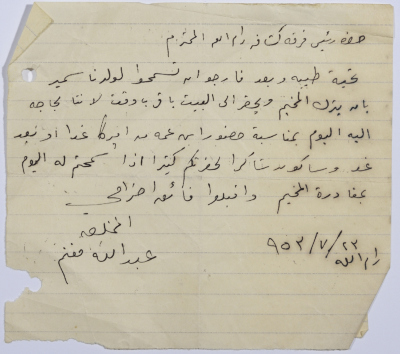 حضرة رئيس فرقة كشافة رام الله المحترم
تحية طيبه وبعد فارجو ان تسمحوا لولدنا سمير
بان يترك المخيم ويحضر الى البيت باقرب وقت لاننا بحاجه
اليه اليوم بمناسبة حضور ابن عمه من اميركا غدا او بعد
غد وساكون شاكرا لحضرتكم كثيرا اذا سمحتم له اليوم
بمغادرة المخيم واقبلوا فائق احترامي
المخلص
عبدالله مغنم
رام الله ٢٣/٧/٩٥٣